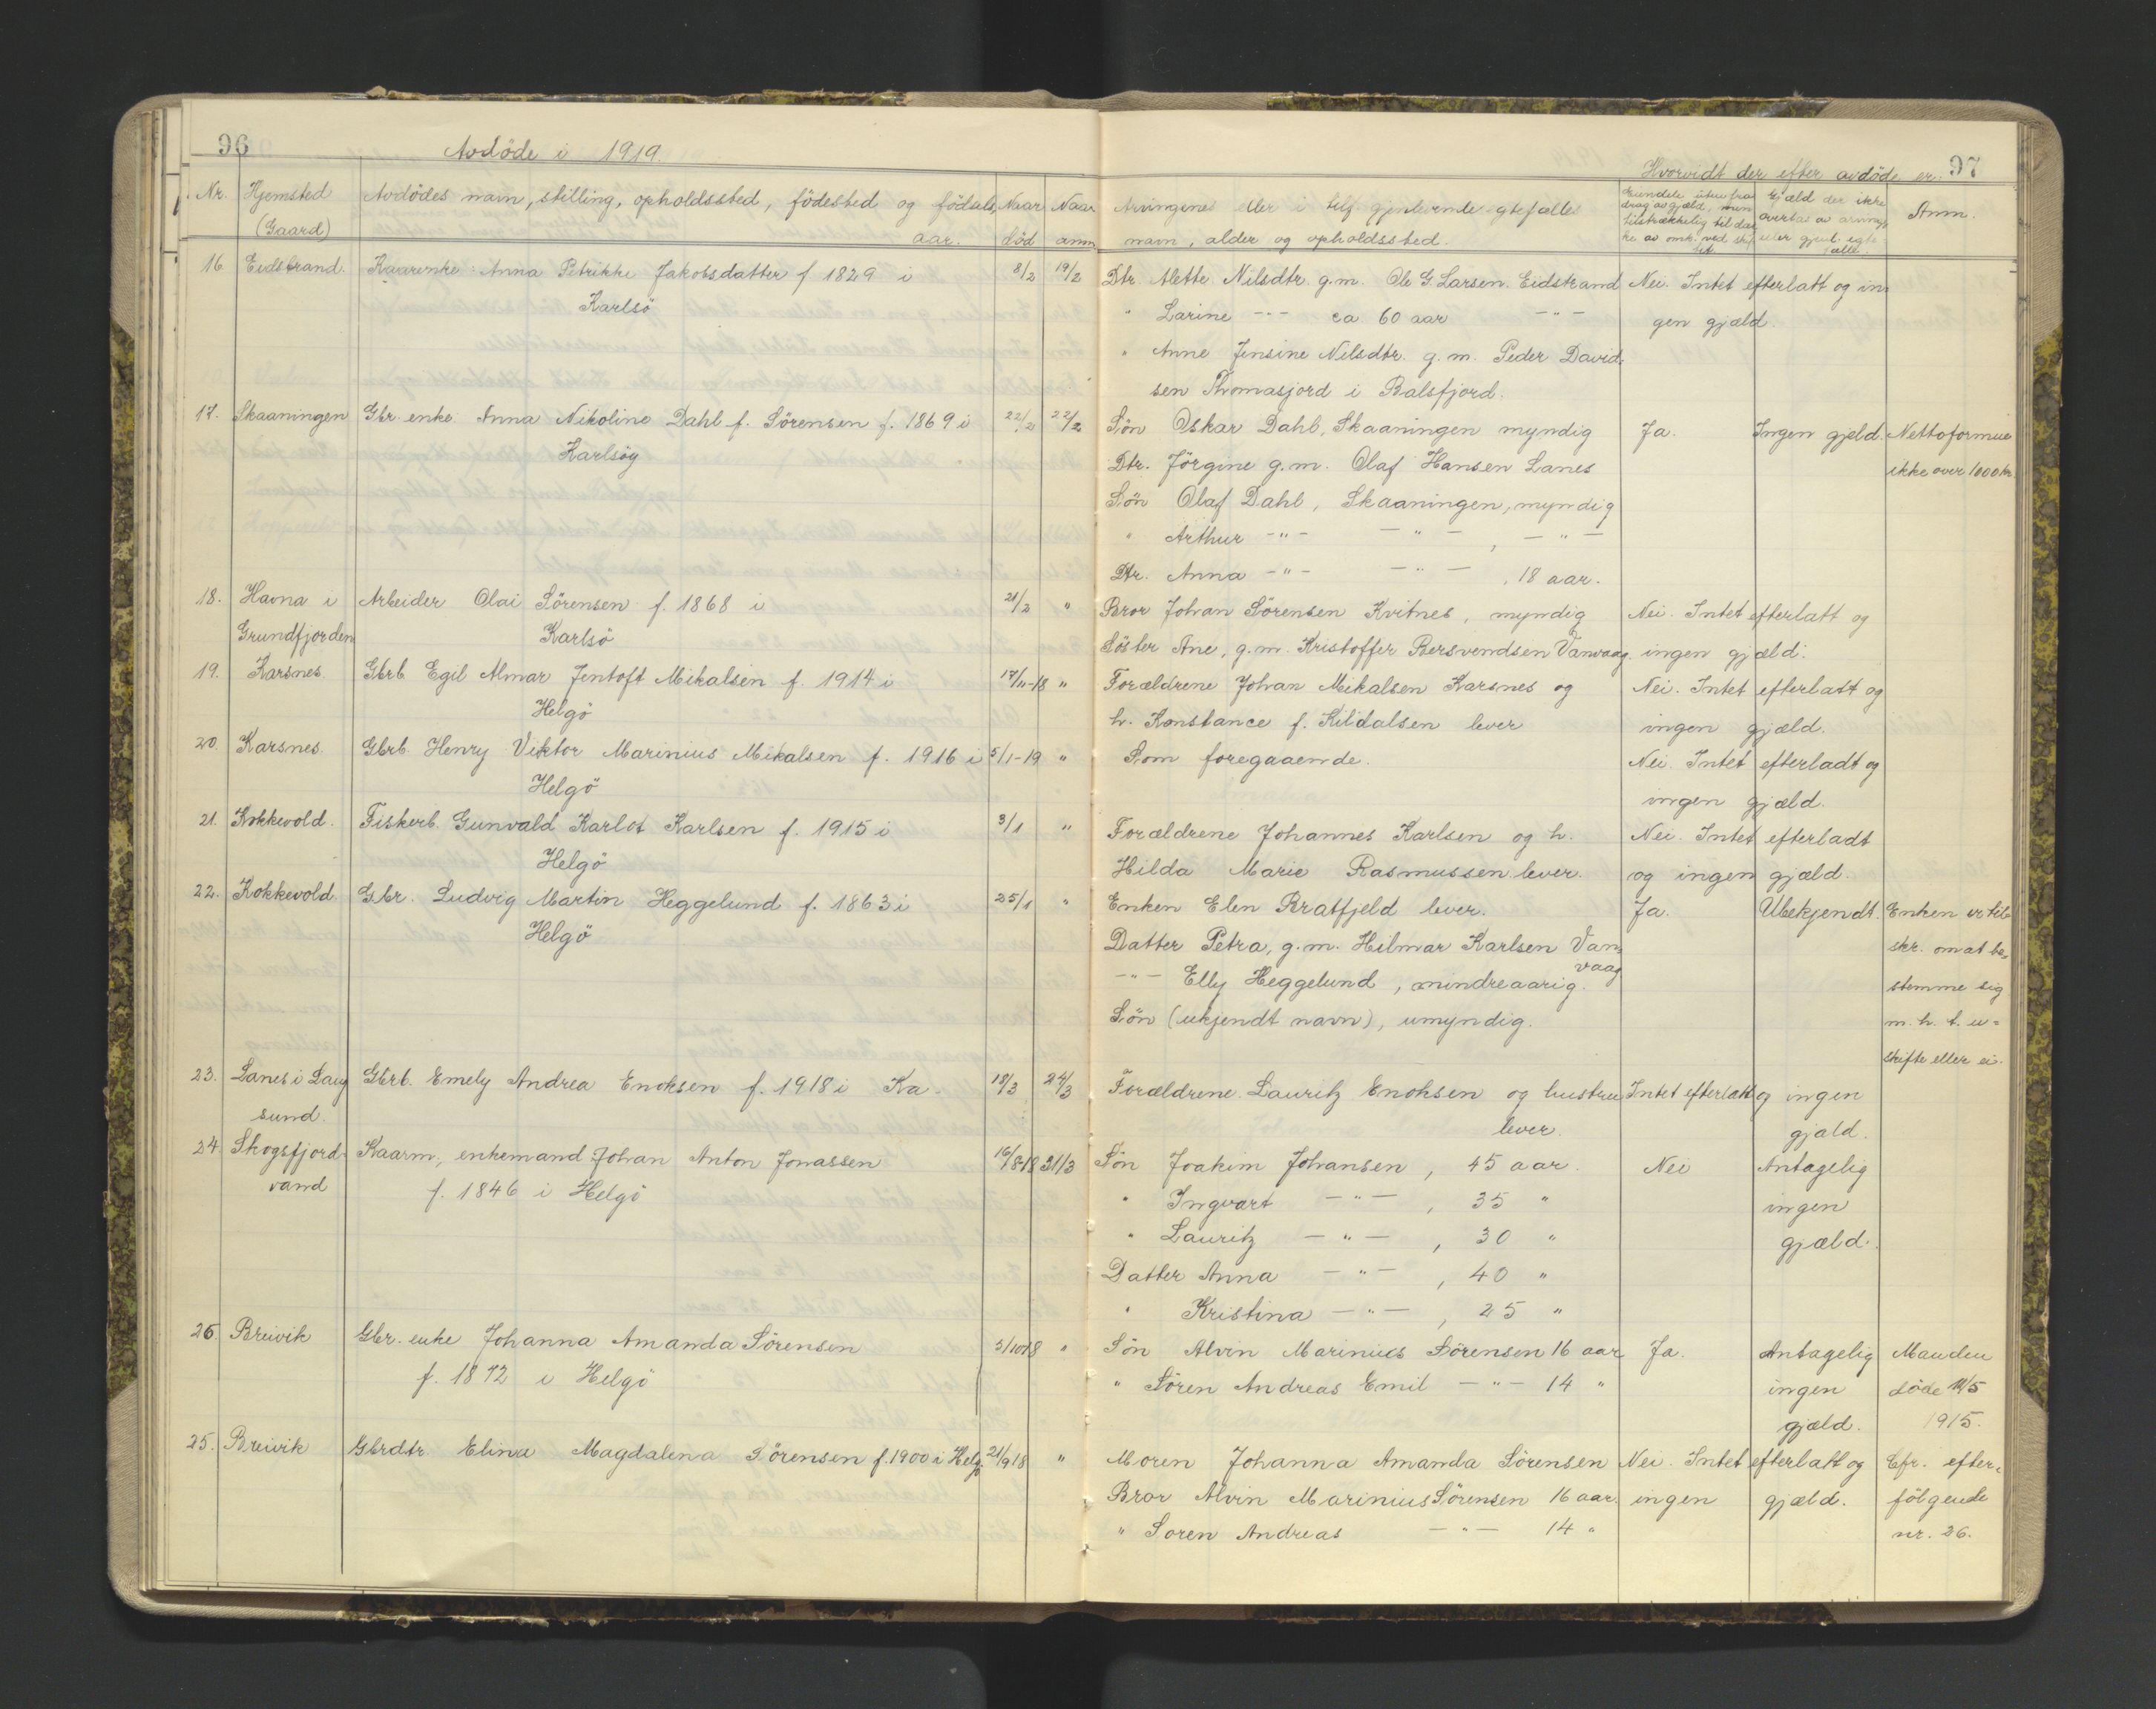 96
Avdöde i 1919.
Nr. Hjemsted (Gaard) Avdödes navn, stilling, opholdssted, födested og födsels aar. Naar död Naar anm.
16 Eidstrand. Kaarenke Anna Petrikke Jakobsdatter f 1829 i 8/2 19/2
Karlsö
17. Skaaningen Gbr. enke Anna Nikoline Dahl f. Sörensen f. 1869 i 22/2 22/2
Karlsöy
18. Havna i Arbeider Olai Sörensen f. 1868 i 21/2 "
Grundfjorden Karlsö
19. Karsnes. Gbrb. Egil Almar Jentoft Mikalsen f. 1914 i 17/11-18 "
Helgö
20. Karsnes. Gbrb. Henry Viktor Marinius Mikalsen f. 1916 i 5/1-19 "
Helgö
21. Kokkevold. Fiskerb. Gunvald Karlot Karlsen f. 1915 i 3/1 "
Helgö
22. Kokkevold. Gbr. Ludvig Martin Heggelund f. 1863 i 25/1 "
Helgö
23. Lanes i Laug Gbrb. Emely Andrea Enoksen f. 1918 i Ka. 18/3 24/3
sund.
24. Skogsfjord Kaarm., enkemand Johan Anton Jonassen 16/8-18 31/3
vand f. 1846 i Helgö
26. Breivik Gbr. enke Johanna Amanda Sörensen 5/10 18 "
f. 1872 i Helgö
25. Breivik Gbrdtr Elina Magdalena Sörensen f. 1900 i Helgö 21/9 18 "
97
Hvorvidt der efter avdöde er:
Arvingenes eller i tilf gjenlevende egtefælles navn, alder og opholdssted.
Gjæld der ikke overtas av arving eller gjenl. egtefælle.
Anm.
Dtr. Mette Nilsdtr. g.m. Ole G. Larsen. Eidstrand Nei. Intet efterlatt og in
" Larine -"- ca 60 aar -"- gen gjæld.
" Anne Jensine Nilsdtr. g. m. Peder David-
sen Thomasjord i Balsfjord.
Sön Oskar Dahl, Skaaningen myndig Ja. Ingen gjæld. Nettoformue
Dtr. Jörgine g.m. Olaf Hansen Lanes ikke over 1000 kr.
Sön Olaf Dahl, Skaaningen, myndig
" Arthur -"- -"-, -"-
Dtr. Anna -"- -"-, 18 aar.
Bror Johan Sörensen Kvitnes, myndig Nei. Intet efterlatt og
Söster Ane, g.m. Kristoffer Bersvendsen Vanvaag. ingen gjæld.
Forældrene Johan Mikalsen Karsnes og Nei. Intet efterlatt og
h. Konstance f. Kildalsen lever ingen gjæld.
Som foregaaende. Nei. Intet efterladt og
ingen gjæld.
Forældrene Johannes Karlsen og h. Nei. Intet efterladt
Hilda Marie Rasmussen lever. og ingen gjæld.
Enken Elen Bratfjeld lever. Ja. Ubekjendt. Enken er til
Datter Petra, g.m. Hilmar Karlsen Van- skr. om at be-
vaag
-"- Elly Heggelund, mindreaarig. stemme sig
Sön (ukjendt navn), umyndig. m. h. t. u=
skifte eller ei.
Forældrene Lauritz Enoksen og hustru Intet efterlatt og ingen
lever. gjæld.
Sön Joakim Johansen, 45 aar. Nei Antagelig
" Ingvart -"-, 35 " ingen
" Lauritz -"-, 30 " gjæld.
Datter Anna -"-, 40 "
" Kristina -"-, 25 "
Sön Alvin Marinius Sörensen 16 aar Ja. Antagelig Manden
" Sören Andreas Emil -"- 14 " ingen döde 11/5
gjæld. 1915.
Moren Johanna Amanda Sörensen Nei. Intet efterlatt og Cfr. efter=
Bror Alvin Marinius Sörensen 16 aar. ingen gjæld. fölgende
" Soren Andreas -"- 14 " nr. 26.